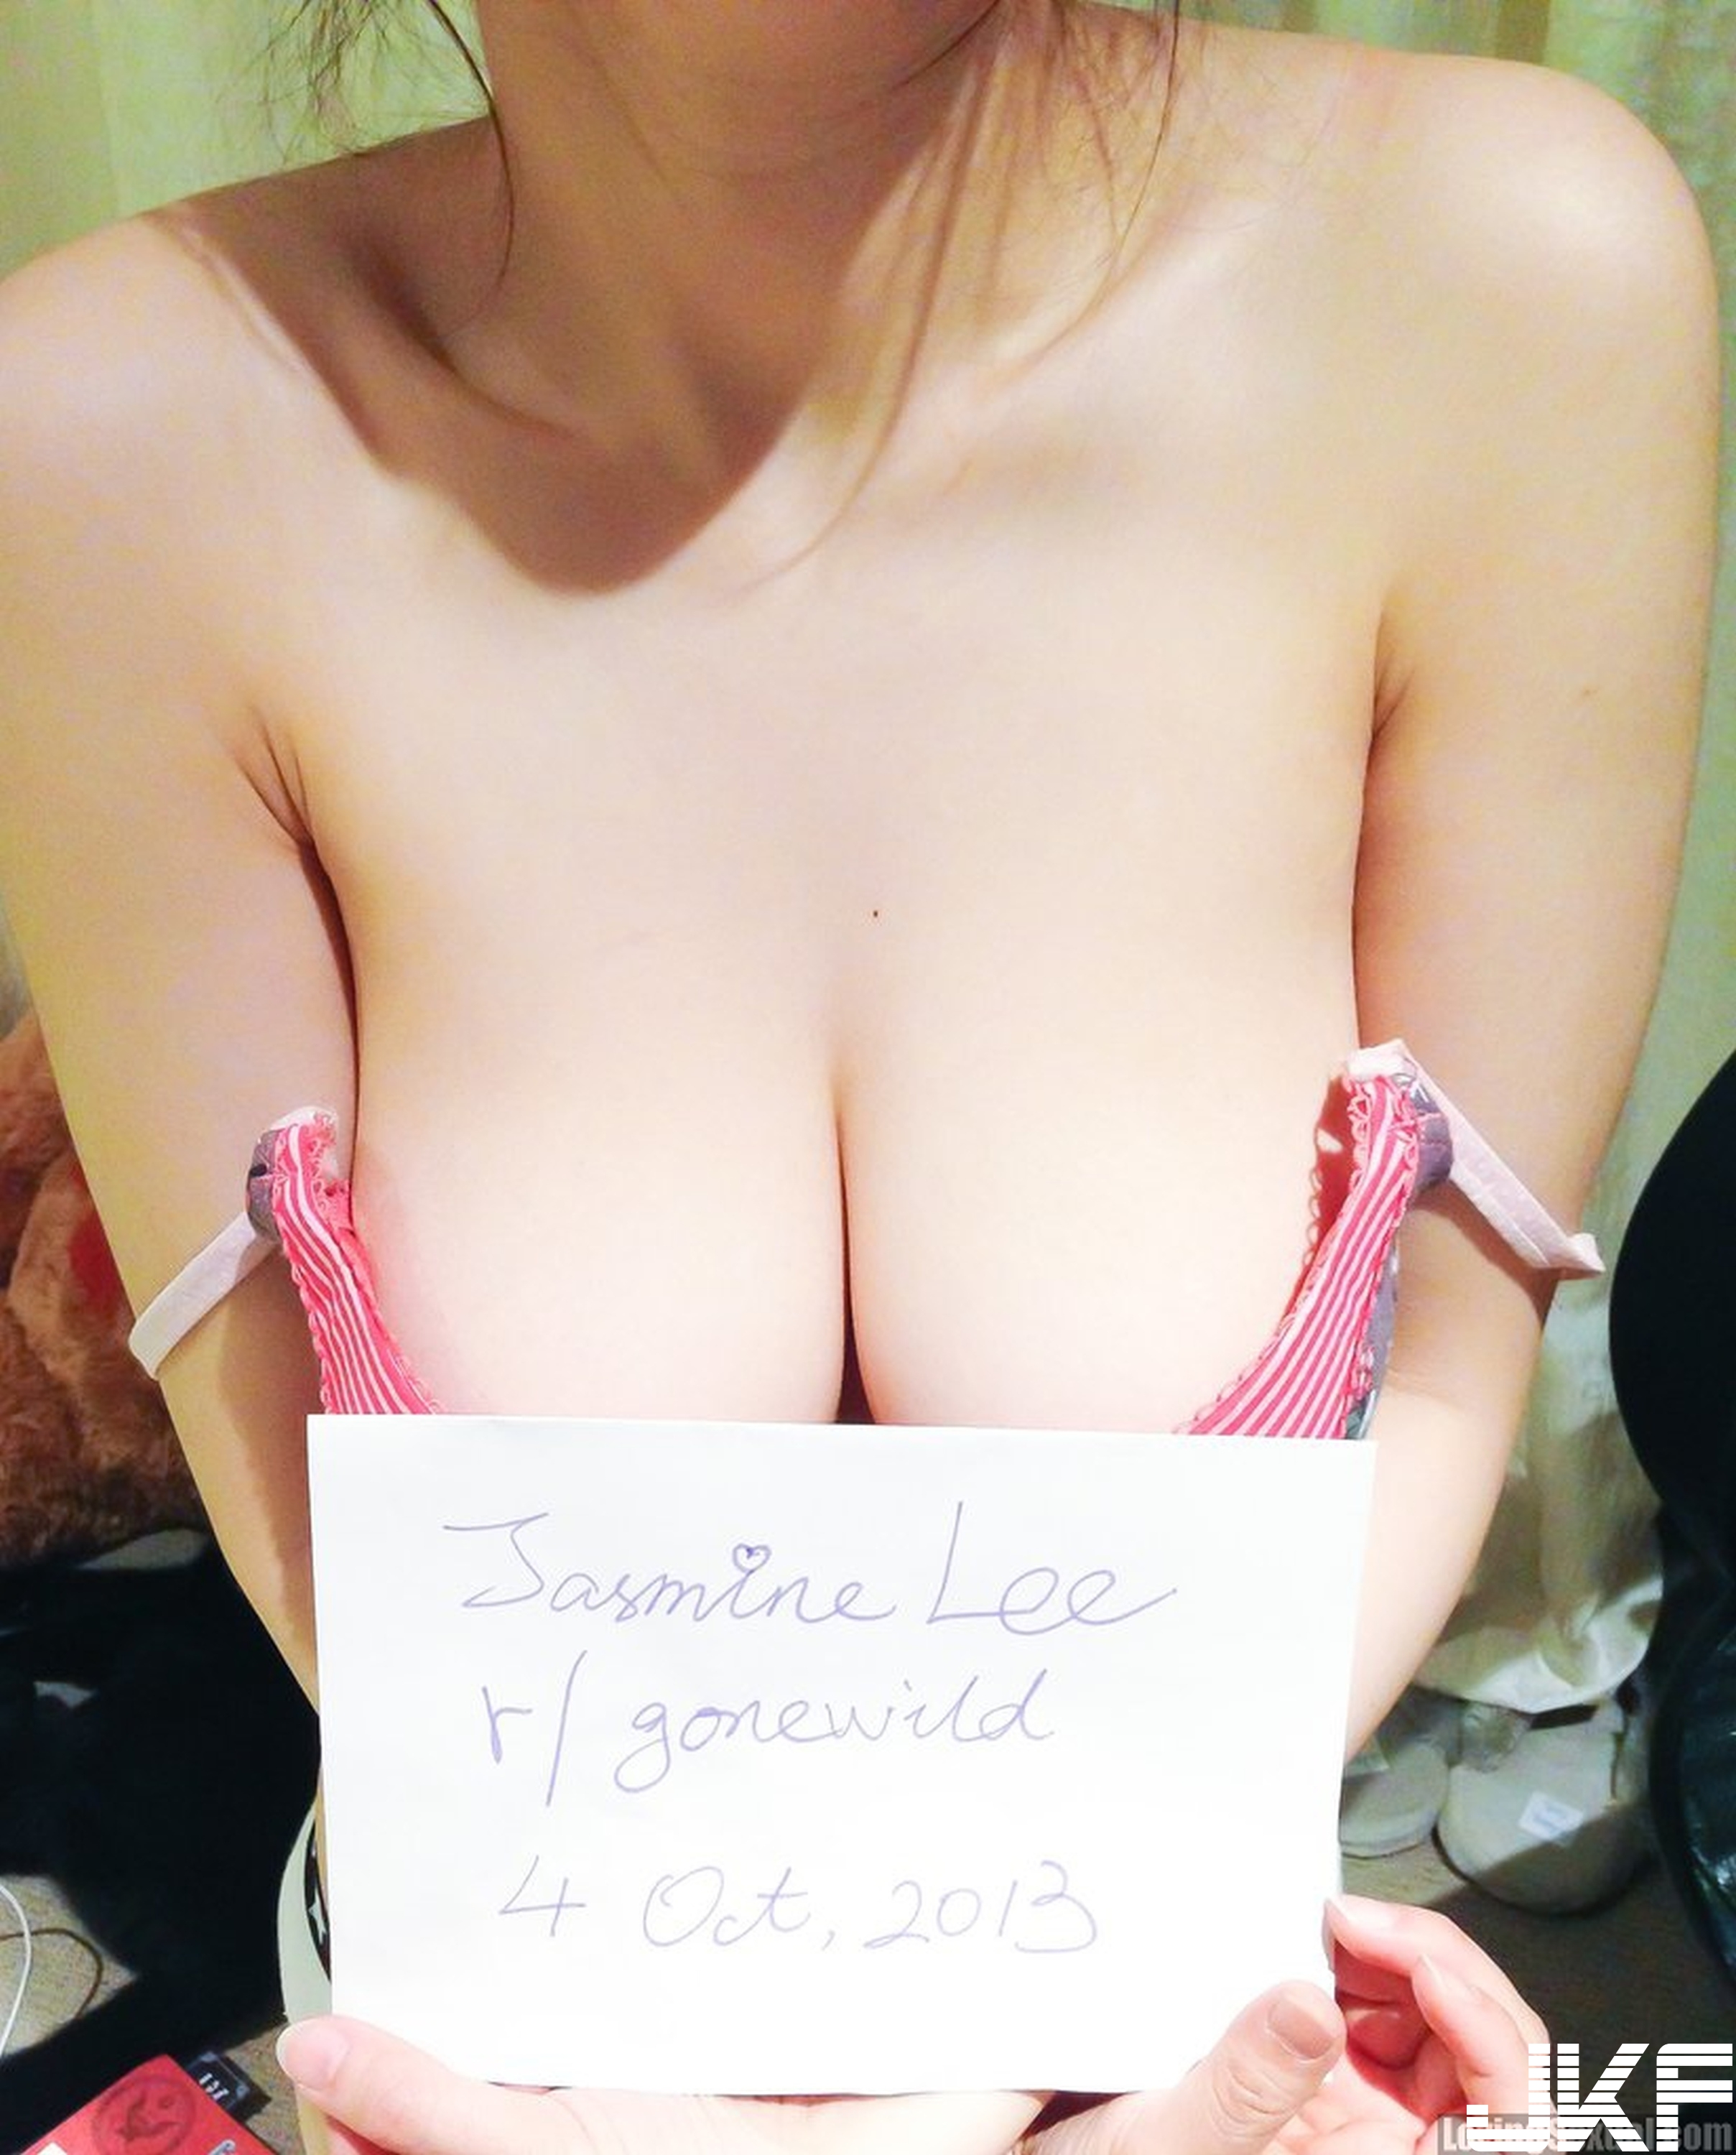 Jasmine Lee
r/gonewild
4 Oct, 2013
JKF